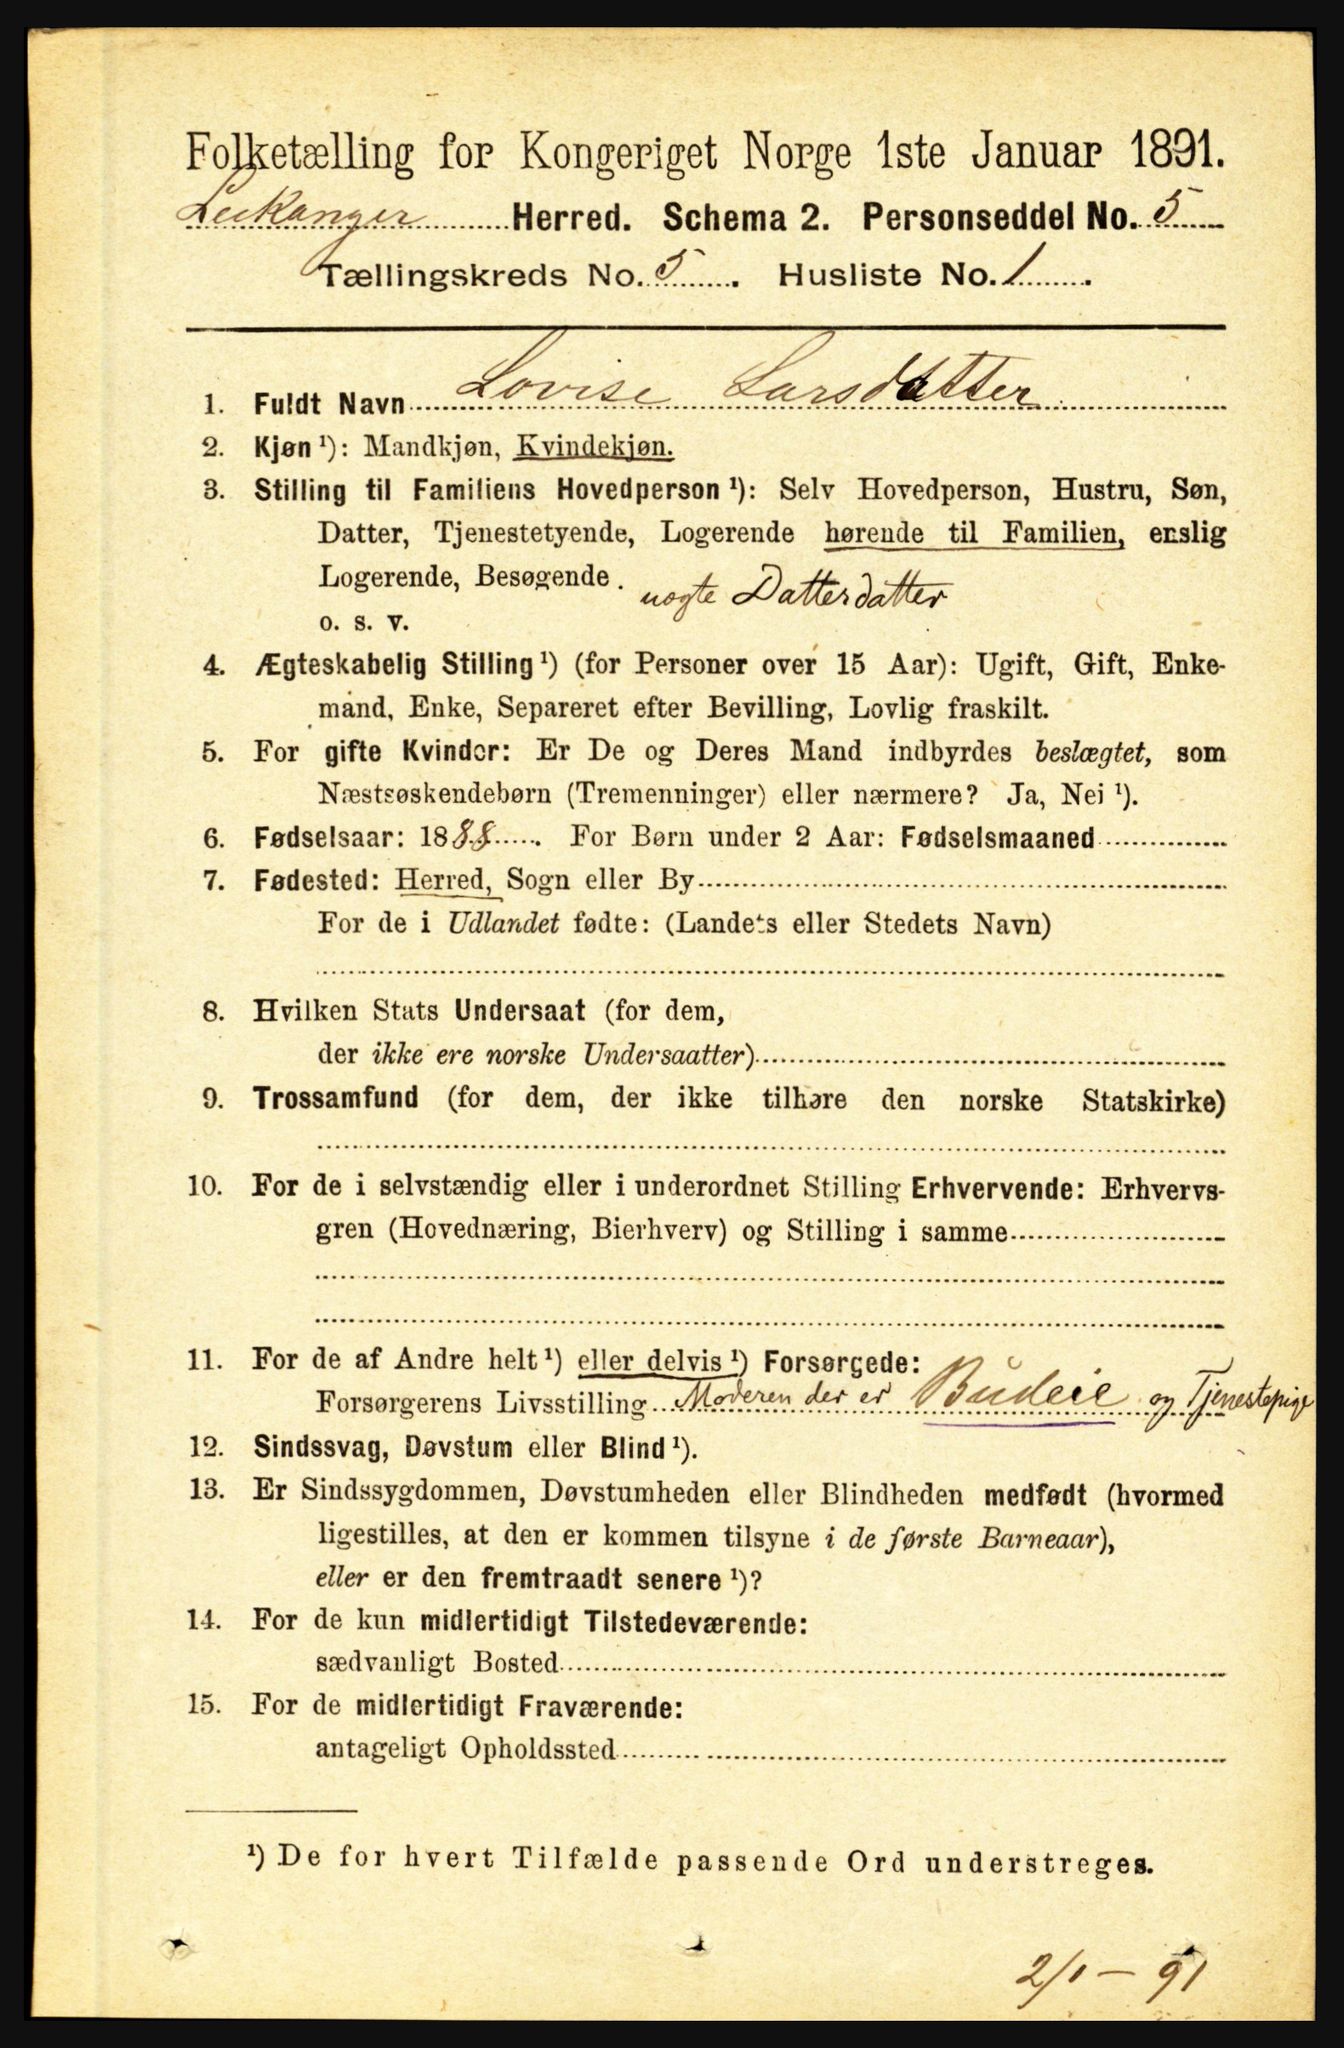 Folketælling for Kongeriget Norge 1ste Januar 1891.
Leikanger Herred. Schema 2. Personseddel No. 5
Tællingskreds No. 5. Husliste No. 1.
1. Fuldt Navn Lovise Larsdatter
2. Kjøn ¹): Mandkjøn, Kvindekjøn.
3. Stilling til Familiens Hovedperson ¹): Selv Hovedperson, Hustru, Søn,
Datter, Tjenestetyende, Logerende hørende til Familien, enslig
Logerende, Besøgende.
uægte Datterdatter
o. s. v.
4. Ægteskabelig Stilling ¹) (for Personer over 15 Aar): Ugift, Gift, Enke-
mand, Enke, Separeret efter Bevilling, Lovlig fraskilt.
5. For gifte Kvinder: Er De og Deres Mand indbyrdes beslægtet, som
Næstsøskendebørn (Tremenninger) eller nærmere? Ja, Nei ¹).
6. Fødselsaar: 1888. For Børn under 2 Aar: Fødselsmaaned
7. Fødested: Herred, Sogn eller By
For de i Udlandet fødte: (Landets eller Stedets Navn)
8. Hvilken Stats Undersaat (for dem,
der ikke ere norske Undersaatter)
9. Trossamfund (for dem, der ikke tilhøre den norske Statskirke)
10. For de i selvstændig eller i underordnet Stilling Erhvervende: Erhvervs-
gren (Hovednæring, Bierhverv) og Stilling i samme
11. For de af Andre helt ¹) eller delvis ¹) Forsørgede:
Forsørgerens Livsstilling Moderen der er Budeie og Tjenestepige
12. Sindssvag, Døvstum eller Blind ¹).
13. Er Sindssygdommen, Døvstumheden eller Blindheden medfødt (hvormed
ligestilles, at den er kommen tilsyne i de første Barneaar),
eller er den fremtraadt senere ¹)?
14. For de kun midlertidigt Tilstedeværende:
sædvanligt Bosted
15. For de midlertidigt Fraværende:
antageligt Opholdssted
¹) De for hvert Tilfælde passende Ord understreges.
2/1 - 91